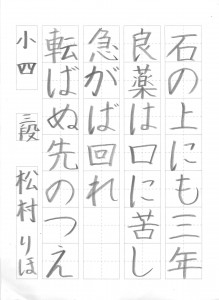 石の上にも三年
良薬は口に苦し
急がば回れ
転ばぬ先のつえ
小四 三段 松村りほ